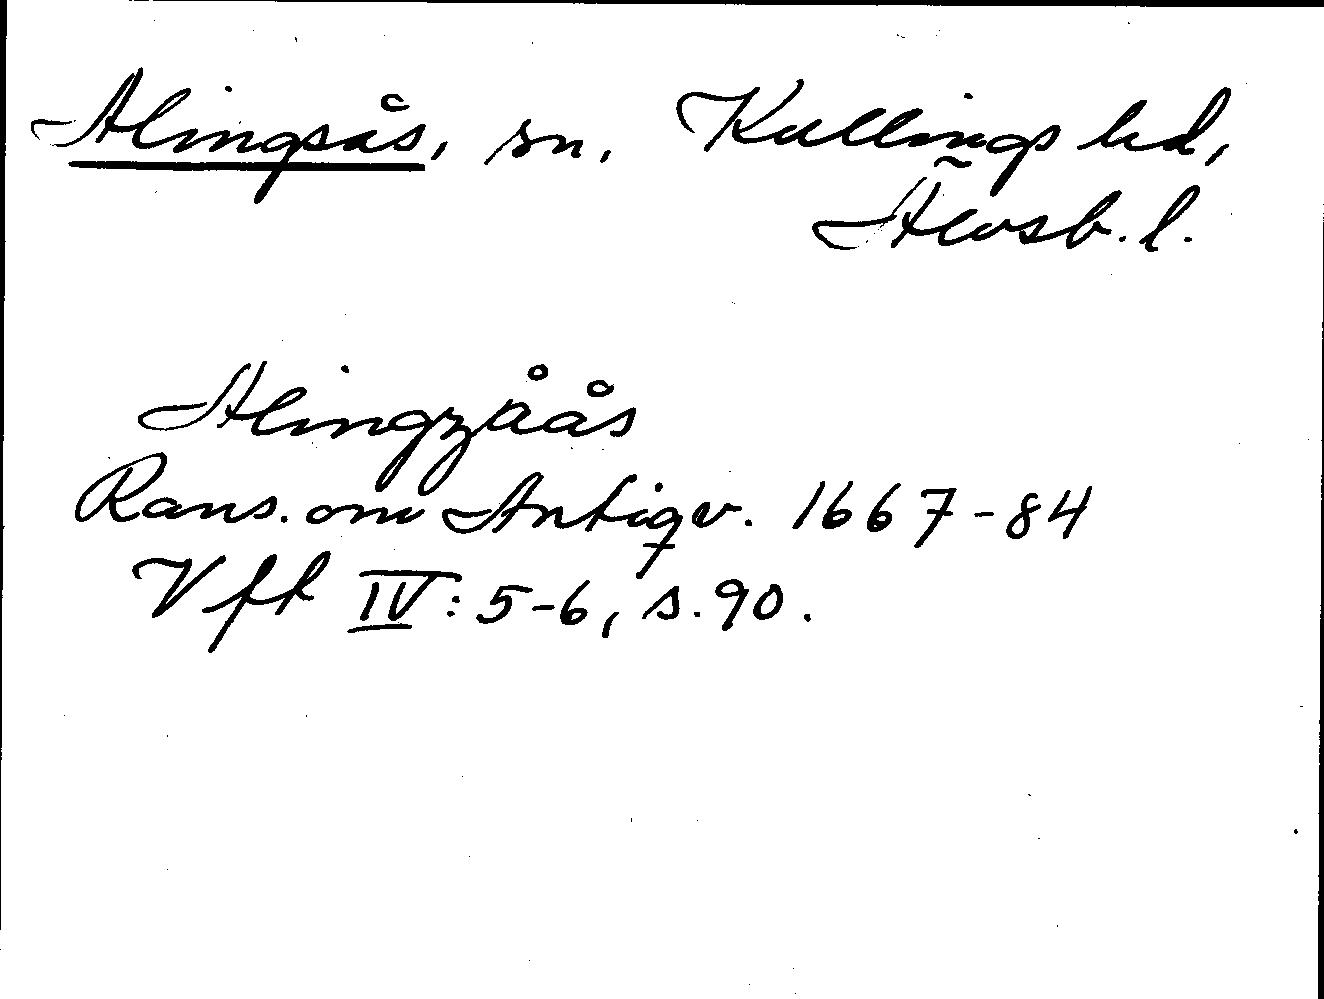 Alingsås, sn. Kullings hd,
Älvsb. l.
Alingzåås
Rans. om Antiqv. 1667-84
Vfk IV: 5-6, s. 90.